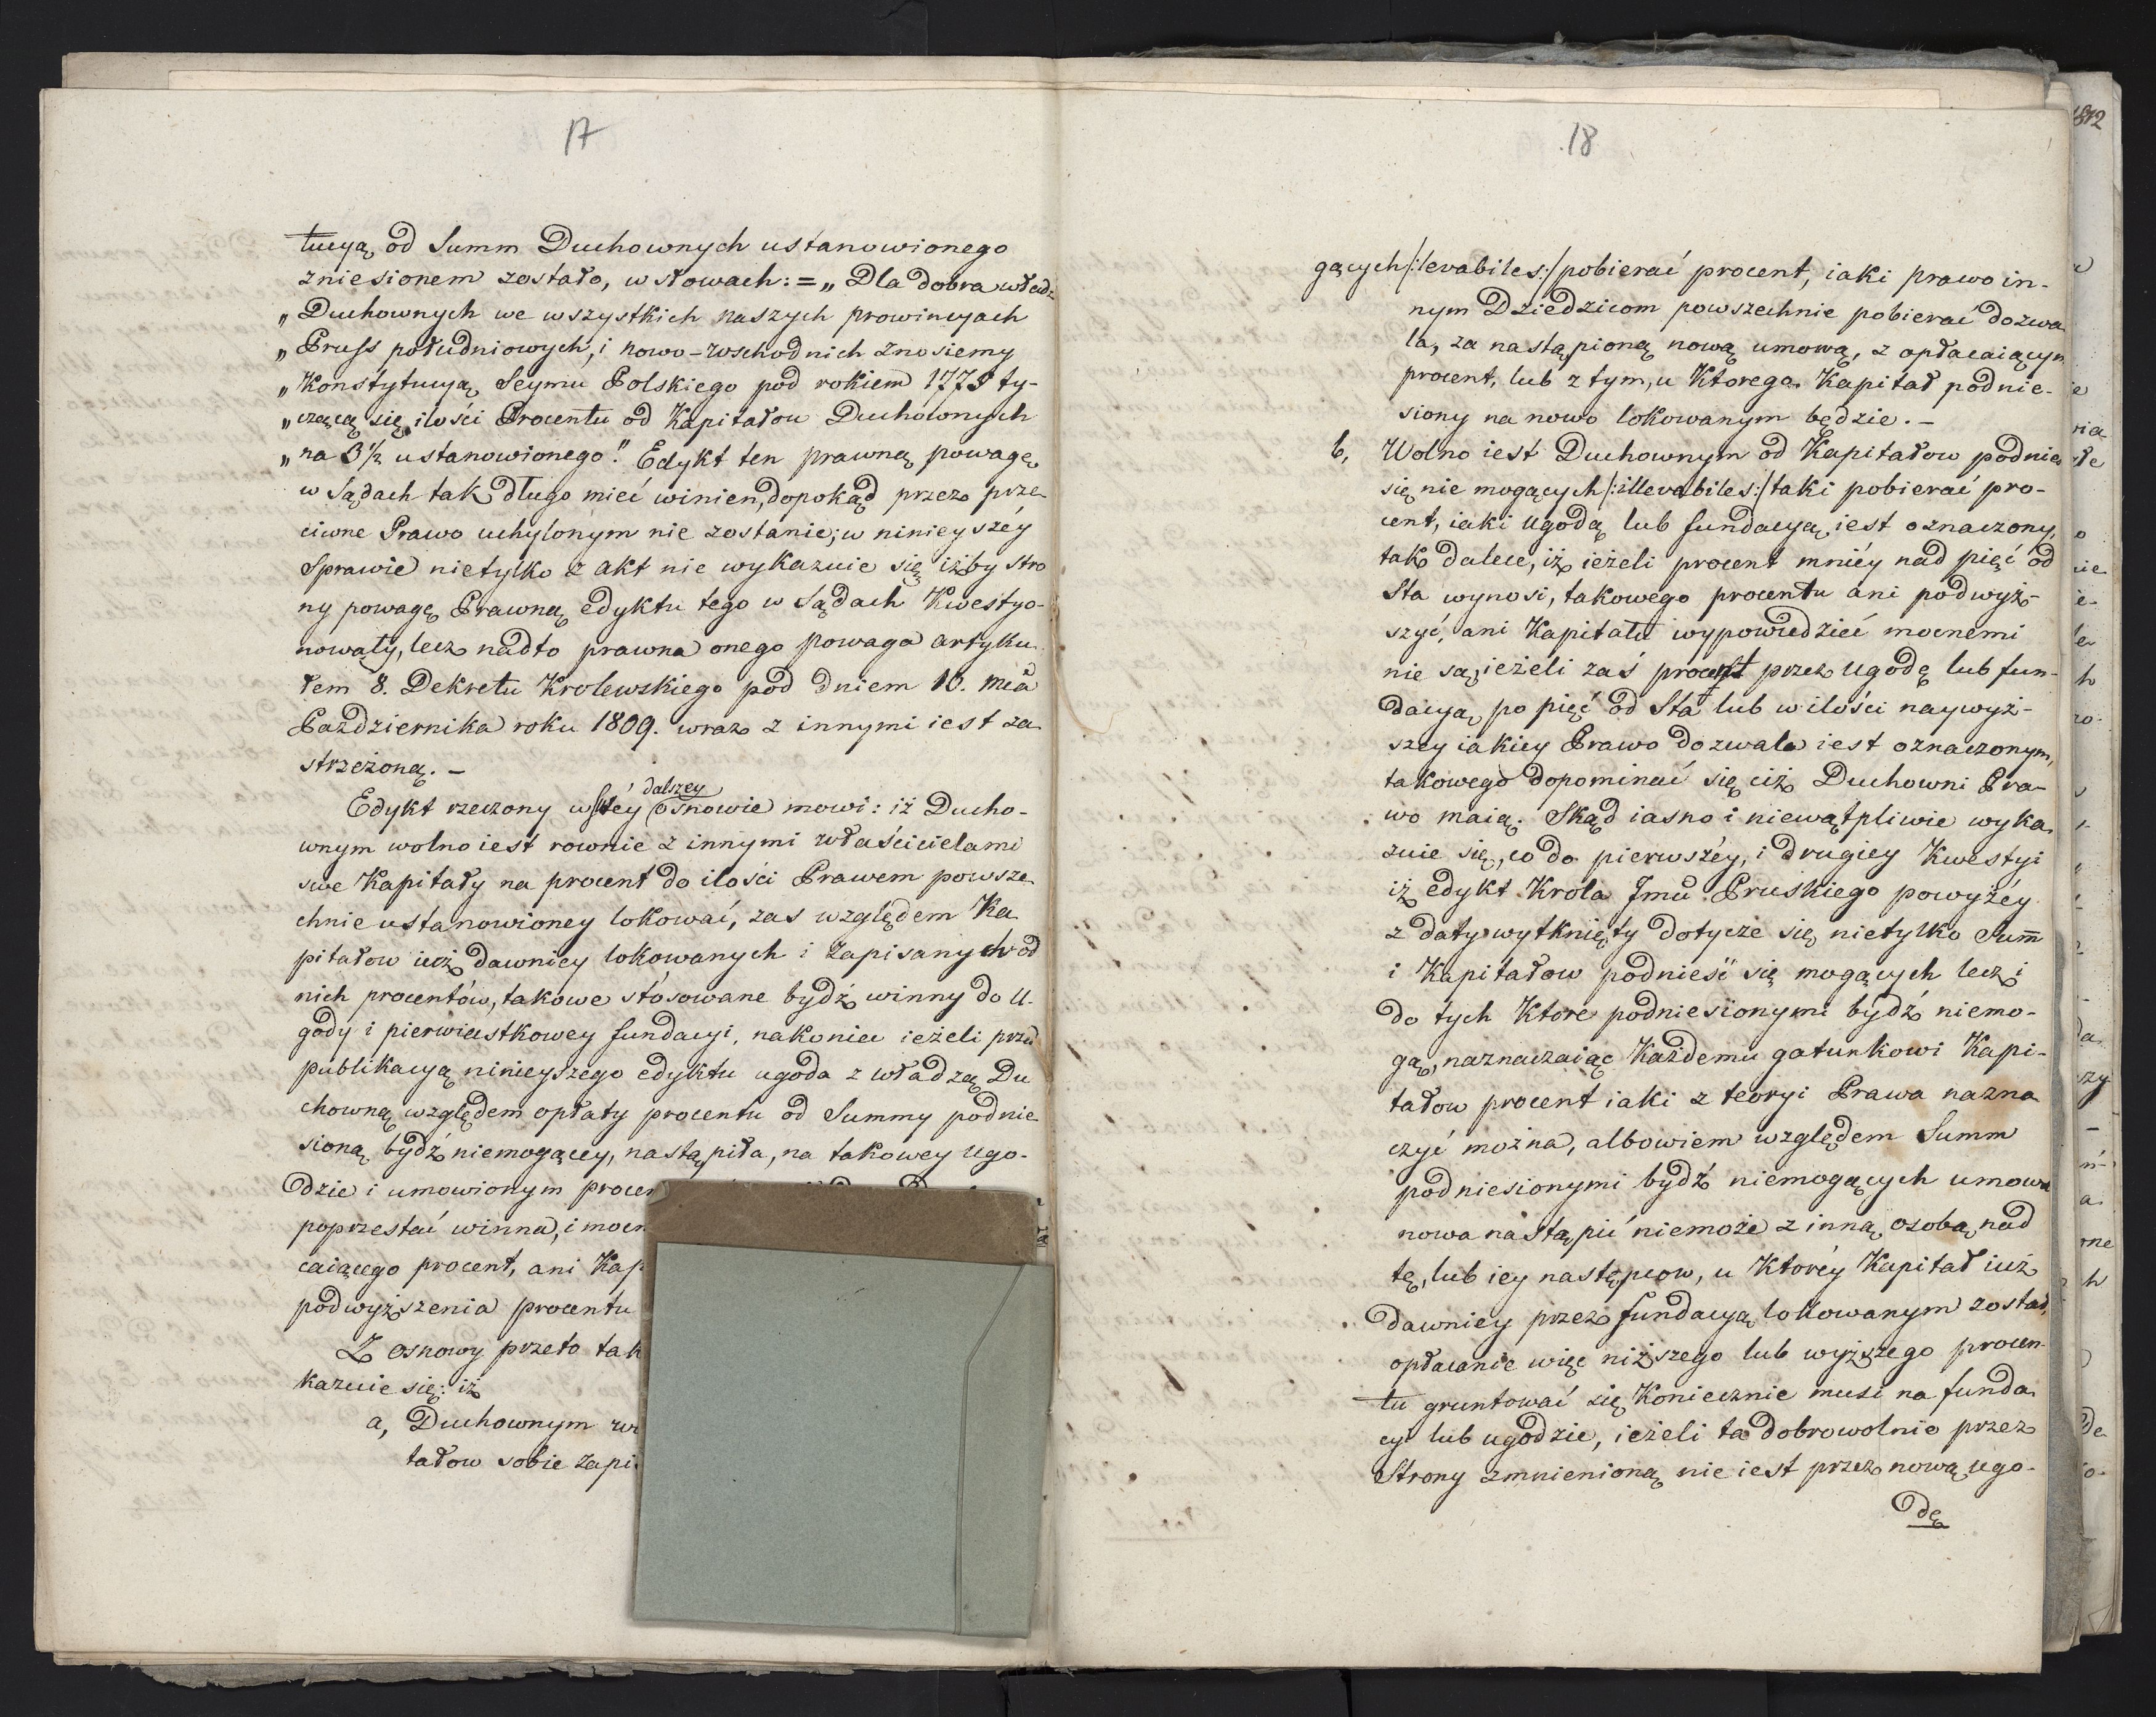 17
tucyą od Summ Duchownych ustanowionego
zniesionem zostało, w słowach: = „Dla dobra władz
„Duchownych we wszystkich naszych prowincyach
„Pruss południowych, i nowo-wschodnich znosiemy
„Konstytucyą Seymu Polskiego pod rokiem 1775 ty-
„czącą się ilości Procentu od Kapitałow Duchownych
„na 3½ ustanowionego." Edykt ten prawną powagę
w Sądach tak długo mieć winien, dopokąd przez prze-
ciwne Prawo uchylonym nie zostanie; w ninieyszéy
Sprawie nietylko z akt nie wykazuie się iżby stro
ny powagę Prawną edyktu tego w Sądach Kwestyo-
nowały, lecz nadto prawna onego powaga artyku
łem 8. Dekretu Krolewskiego pod dniem 10. mca
Pazdziernika roku 1809. wraz z innymi iest za
strzeżoną. -
dalszey
Edykt rzeczony w swéy osnowie mowi: iż Ducho-
wnym wolno iest rownie z innymi właścicielami
swe Kapitały na procent do ilości Prawem powsze
chnie ustanowioney lokować, zas względem Ka
pitałow iuż dawniey lokowanych i zapisanych od
nich procentów, takowe stósowane bydź winny do u-
gody i pierwiastkowey fundacyi, nakoniec ieżeli przed
publikacyą ninieyszego edyktu ugoda z władzą Du
chowną względem opłaty procentu od Summy podnie
sioną bydź niemogącey, nastąpiła, na takowey ugo-
dzie i umowionym procen
poprzestać winna, i mocn
caiącego procent, ani Kap
podwyższenia procentu
Z osnowy przeto tak
kazuie się: iż
a, Duchownym w
tałow sobie zapi
18
gących /:levabiles:/ pobierać procent, iaki prawo in-
nym Dziedzicom powszechnie pobierać dozwa
la, za nastąpioną nową umową, z opłacaiącym
procent, lub z tym, u Ktorego Kapitał podnie-
siony na nowo lokowanym będzie. -
b, Wolno iest Duchownym od Kapitałow podnieś
się nie mogących /:illevabiles:/ taki pobierać pro-
cent, iaki ugodą lub fundacyą iest oznaczony,
tak dalece, iż ieżeli procent mniéy nad pięć od
Sta wynosi, takowego procentu ani podwyż-
szyć, ani Kapitału wypowiedzieć mocnemi
nie są, ieżeli zaś procent przez ugodę lub fun-
dacyą po pięć od Sta lub w ilości naywyż-
szey iakiey Prawo dozwala iest oznaczonym,
takowego dopominać się ciż Duchowni Pra-
wo maią. Skąd iasno i niewątpliwie wyka
zuie się, co do pierwszéy, i drugiey Kwestyi
iż edykt Krola Jmci Pruskiego powyżéy
z daty wytknięty dotycze się nietylko Summ
i Kapitałow podnieść się mogących lecz i
do tych Ktore podniesionymi bydź niemo-
gą, naznaczaiąc Każdemu gatunkowi Kapi-
tałow procent iaki z teoryi Prawa nazna
czyć można, albowiem względem Summ
podniesionymi bydź niemogących umowa
nowa nastąpić niemoże z inną osobą nad
tę, lub iey następcow, u Ktoréy Kapitał iuż
dawniey przez fundacyą lokowanym został,
opłacanie więc niższego lub wyższego procen-
tu gruntować się Koniecznie musi na funda
cyi lub ugodzie, ieżeli ta dobrowolnie przez
Strony zmnienioną nie iest przez nową ugo-
dę
1812